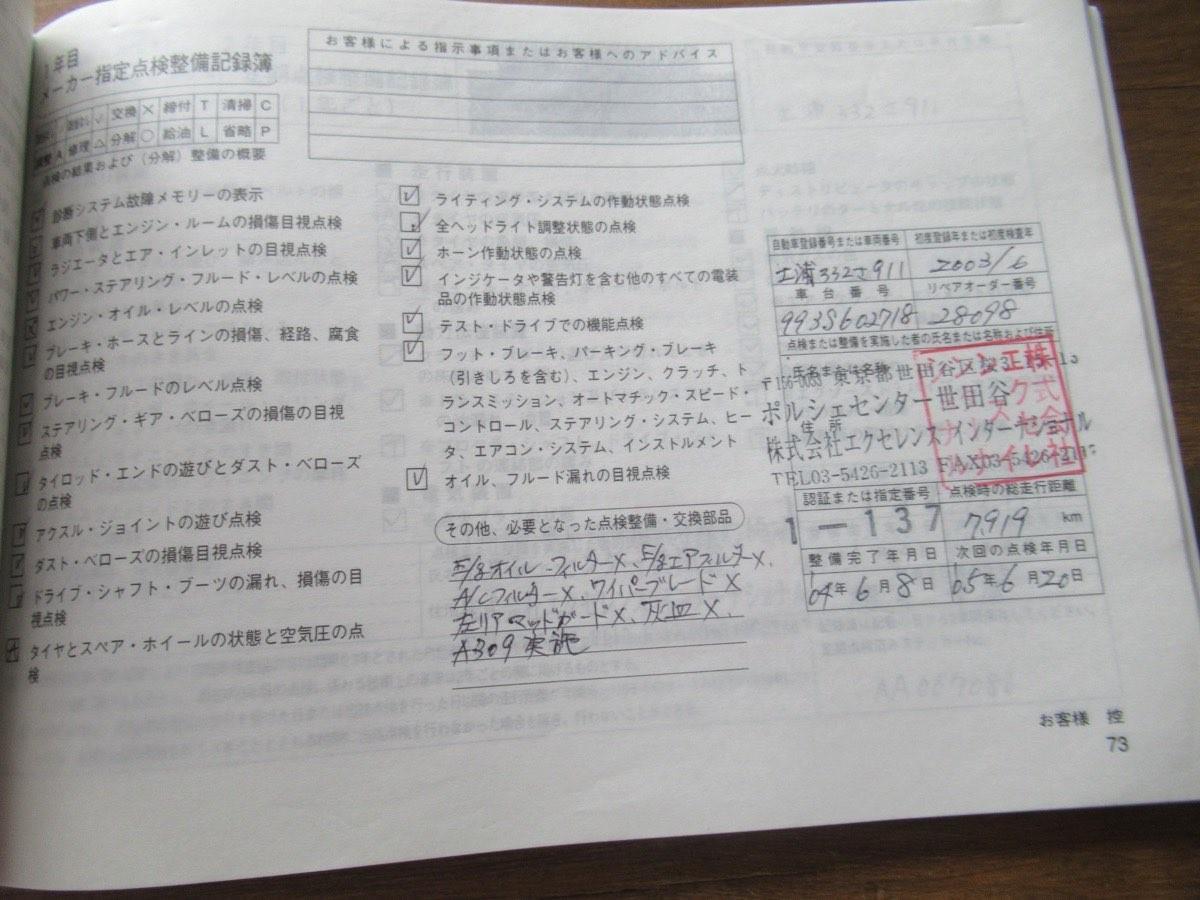 年目
メーカー指定点検整備記録簿
交換 × 締付 T 清掃 C
調整 A 修理 △ 分解 ○ 給油 L 省略 P
点検の結果および(分解)整備の概要
診断システム故障メモリーの表示
車両下側とエンジン・ルームの損傷目視点検
ラジエータとエア・インレットの目視点検
パワー・ステアリング・フルード・レベルの点検
エンジン・オイル・レベルの点検
ブレーキ・ホースとラインの損傷、経路、腐食
の目視点検
ブレーキ・フルードのレベル点検
ステアリング・ギア・ベローズの損傷の目視
点検
タイロッド・エンドの遊びとダスト・ベローズ
の点検
アクスル・ジョイントの遊び点検
ダスト・ベローズの損傷目視点検
ドライブ・シャフト・ブーツの漏れ、損傷の目
視点検
タイヤとスペア・ホイールの状態と空気圧の点
検
お客様による指示事項またはお客様へのアドバイス
ライティング・システムの作動状態点検
全ヘッドライト調整状態の点検
ホーン作動状態の点検
インジケータや警告灯を含む他のすべての電装
品の作動状態点検
テスト・ドライブでの機能点検
フット・ブレーキ、パーキング・ブレーキ
(引きしろを含む)、エンジン、クラッチ、ト
ランスミッション、オートマチック・スピード・
コントロール、ステアリング・システム、ヒー
タ、エアコン・システム、インストルメント
オイル、フルード漏れの目視点検
その他、必要となった点検整備・交換部品
E/gオイル・フィルター×、E/gエアフィルター×、
A/Cフィルター×、ワイパーブレード×
左リアマッドガード×、
A309 実施
自動車登録番号または車両番号 初度登録年または初度検査年
土浦332さ911 2003/6
車台番号 リペアオーダー番号
993S602718 28098
点検または整備を実施した者の氏名または名称および住所
氏名または名称
東京都世田谷区桜
ポルシェセンター世田谷
住所
株式会社エクセレンス インターナショナル
TEL03-5426-2113
認証または指定番号 点検時の総走行距離
1-137 7919 km
整備完了年月日 次回の点検年月日
04年6月8日 05年6月20日
お客様 控
73